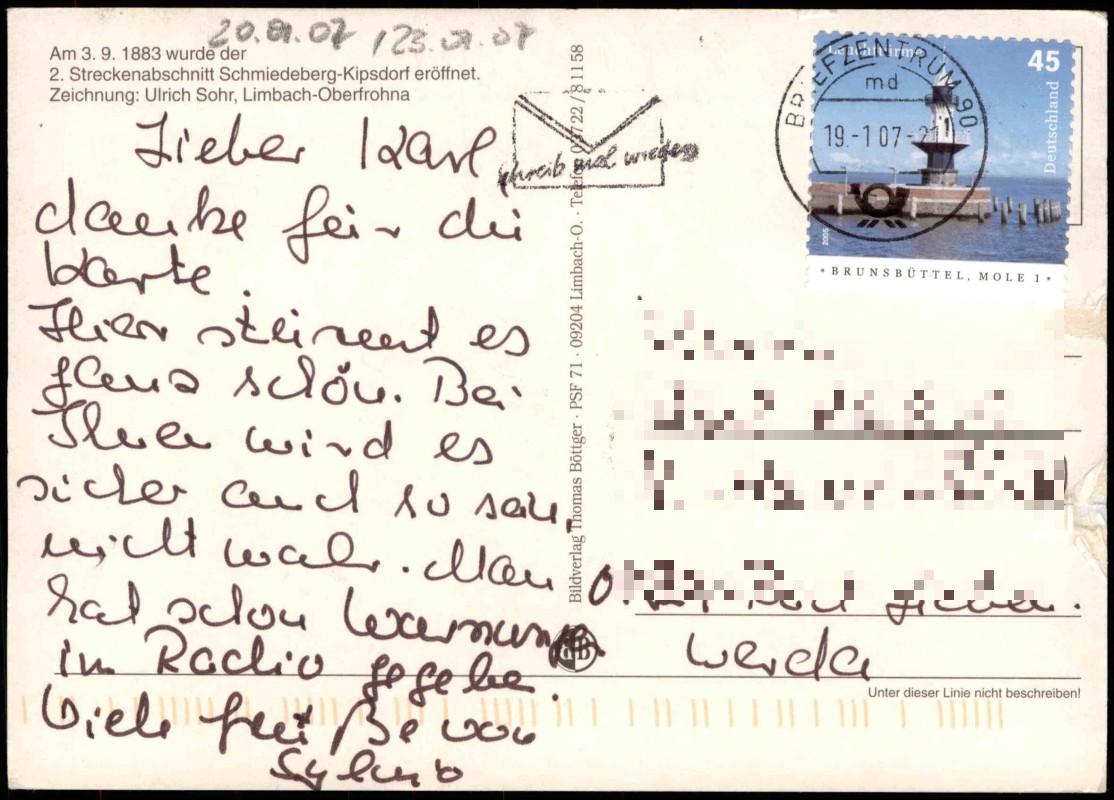 20.01.07 / 23.01.07
Am 3. 9. 1883 wurde der
2. Streckenabschnitt Schmiedeberg-Kipsdorf eröffnet.
Zeichnung: Ulrich Sohr, Limbach-Oberfrohna
Lieber Karl
danke für die
Karte.
Hier stürmt es
ganz schön. Bei
Ihnen wird es
sicher auch so sein,
nicht wahr. Man
hat schon Warnung
im Radio gegeben.
Viele Grüße von
schreib mal wieder
Bildverlag Thomas Böttger · PSF 71 · 09204 Limbach-O. · Telefon 03722/81158
BRIEFZENTRUM 90
md
19.-1 07-21
Leuchttürme
45
Deutschland
2005
* BRUNSBÜTTEL, MOLE 1 *
werda
Unter dieser Linie nicht beschreiben!